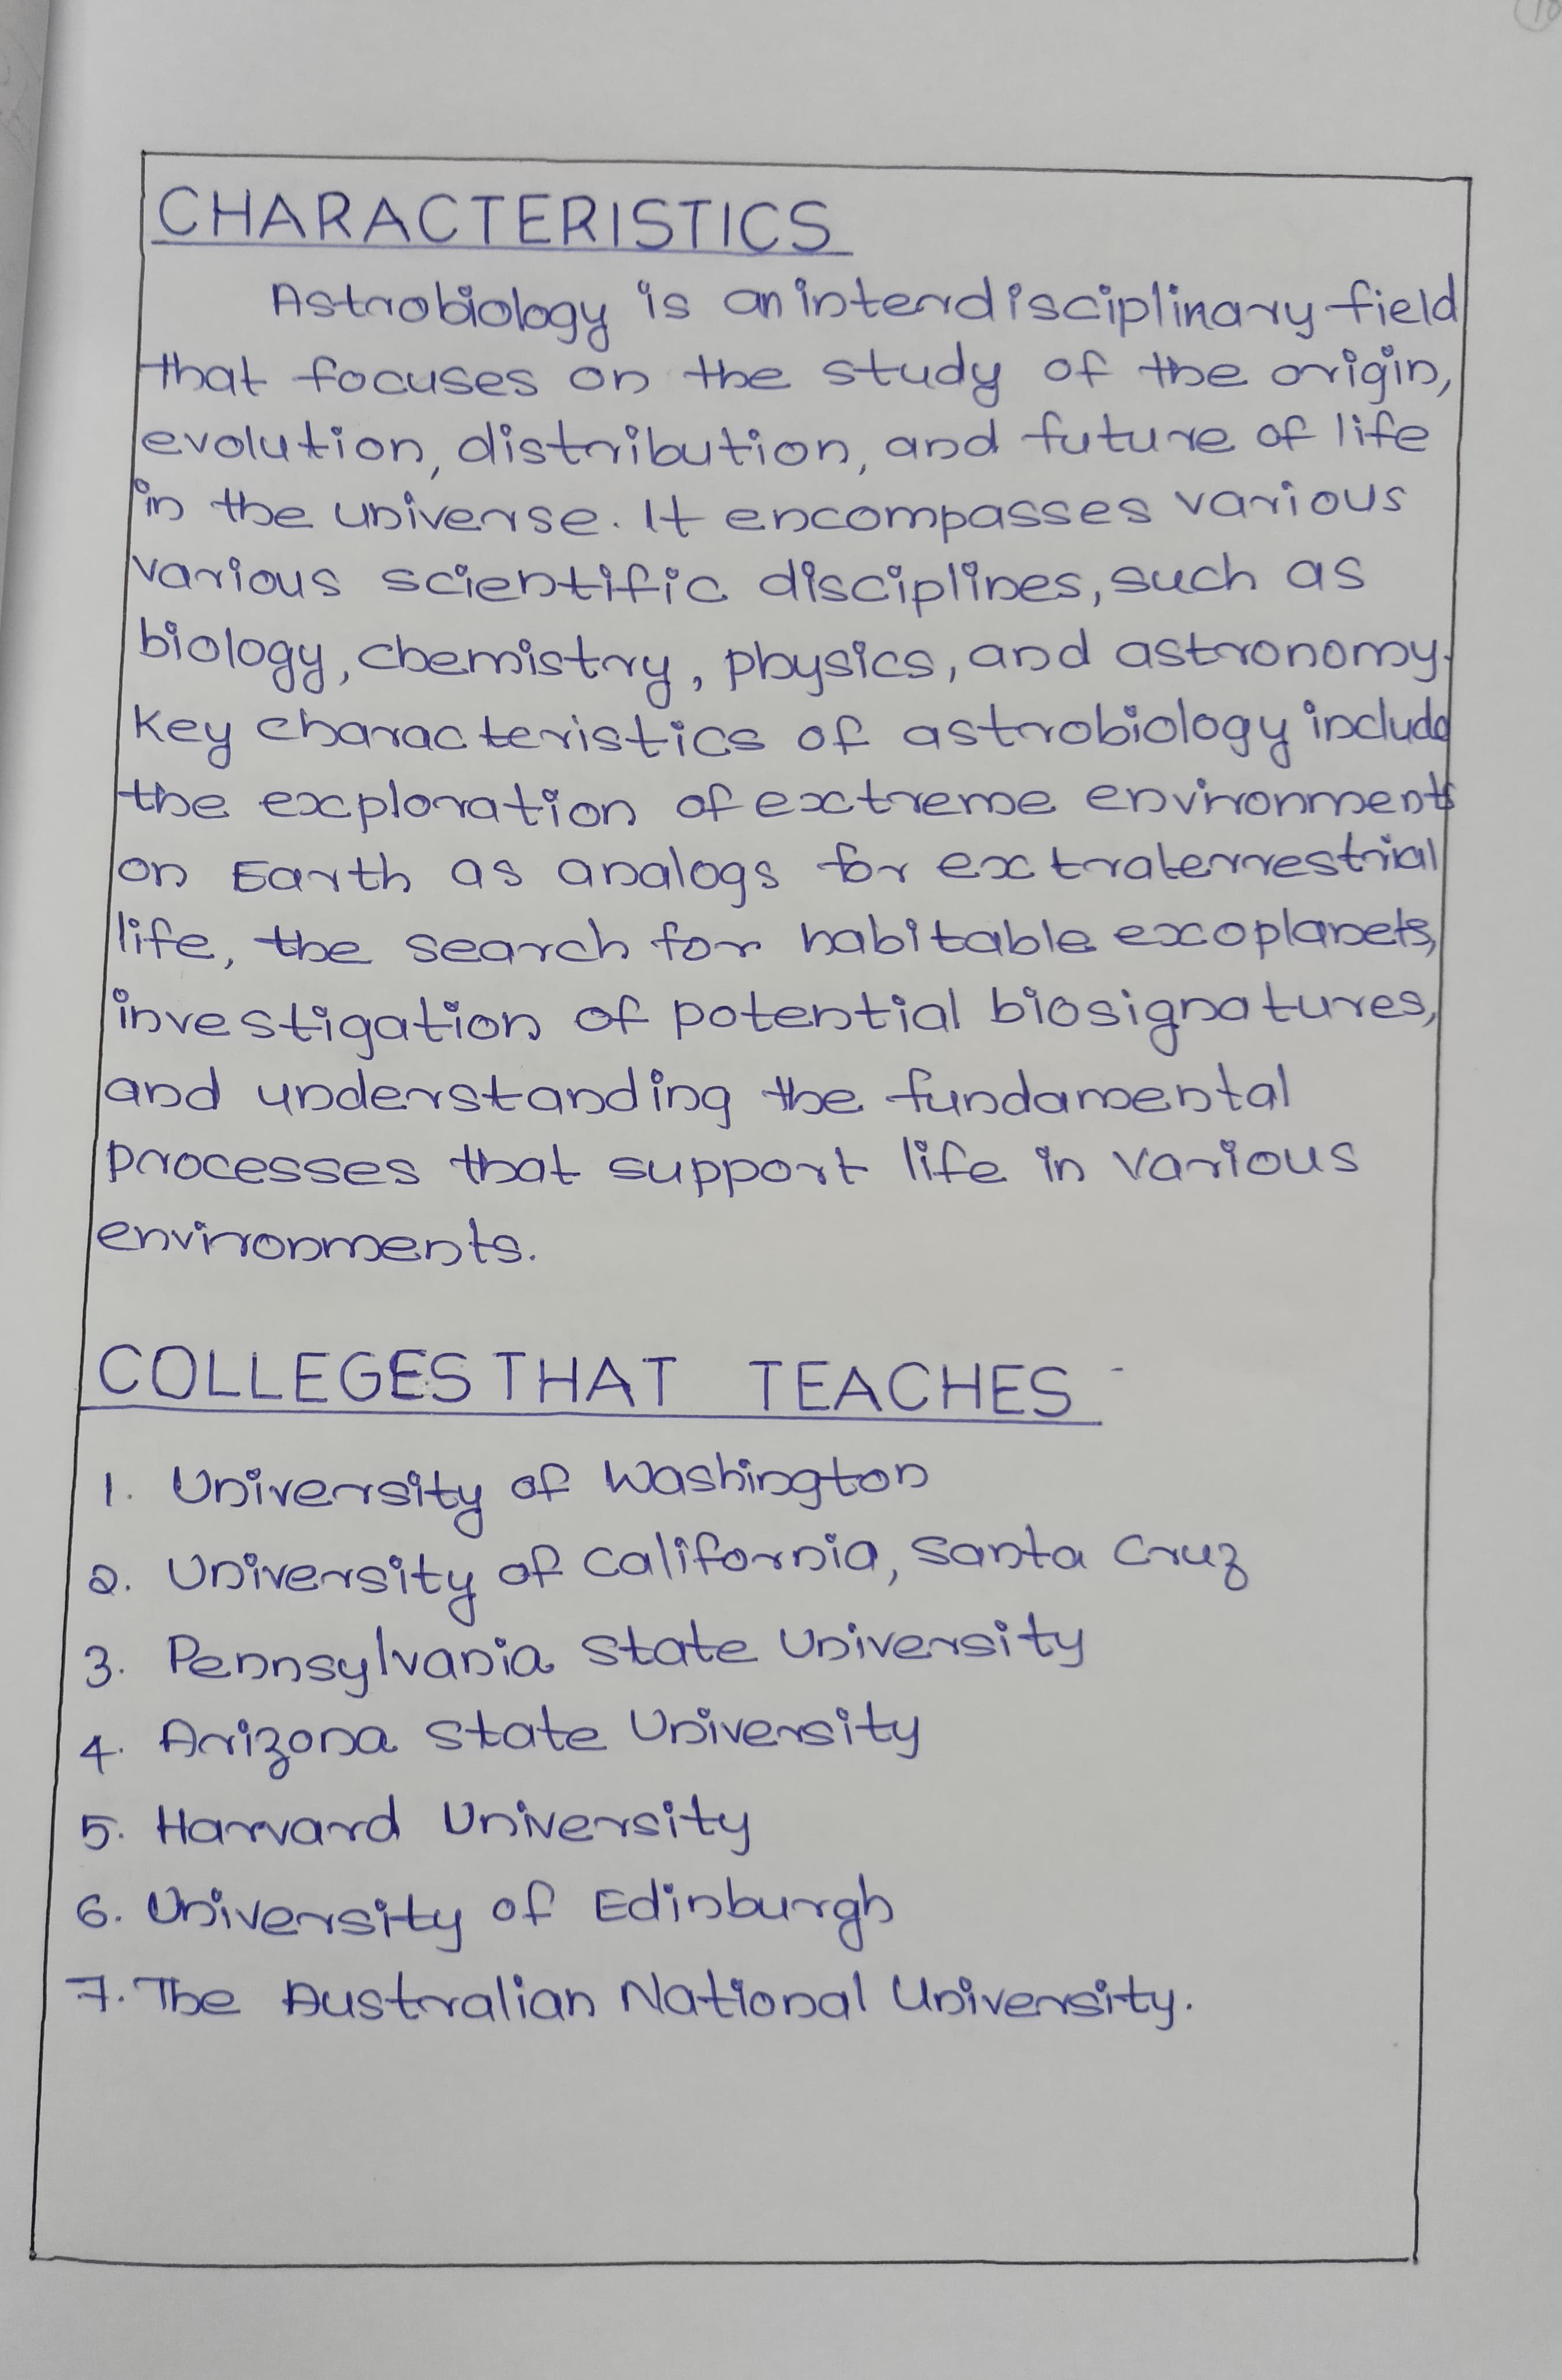 CHARACTERISTICS
Astrobiology is an interdisciplinary field
that focuses on the study of the origin,
evolution, distribution, and future of life
in the universe. It encompasses various
various scientific disciplines, such as
biology, chemistry, physics, and astronomy.
Key characteristics of astrobiology include
the exploration of extreme environments
on Earth as analogs for extraterrestrial
life, the search for habitable exoplanets,
investigation of potential biosignatures,
and understanding the fundamental
processes that support life in various
environments.
COLLEGES THAT TEACHES
1. University of Washington
2. University of California, Santa Cruz
3. Pennsylvania State University
4. Arizona State University
5. Harvard University
6. University of Edinburgh
7. The Australian National University.